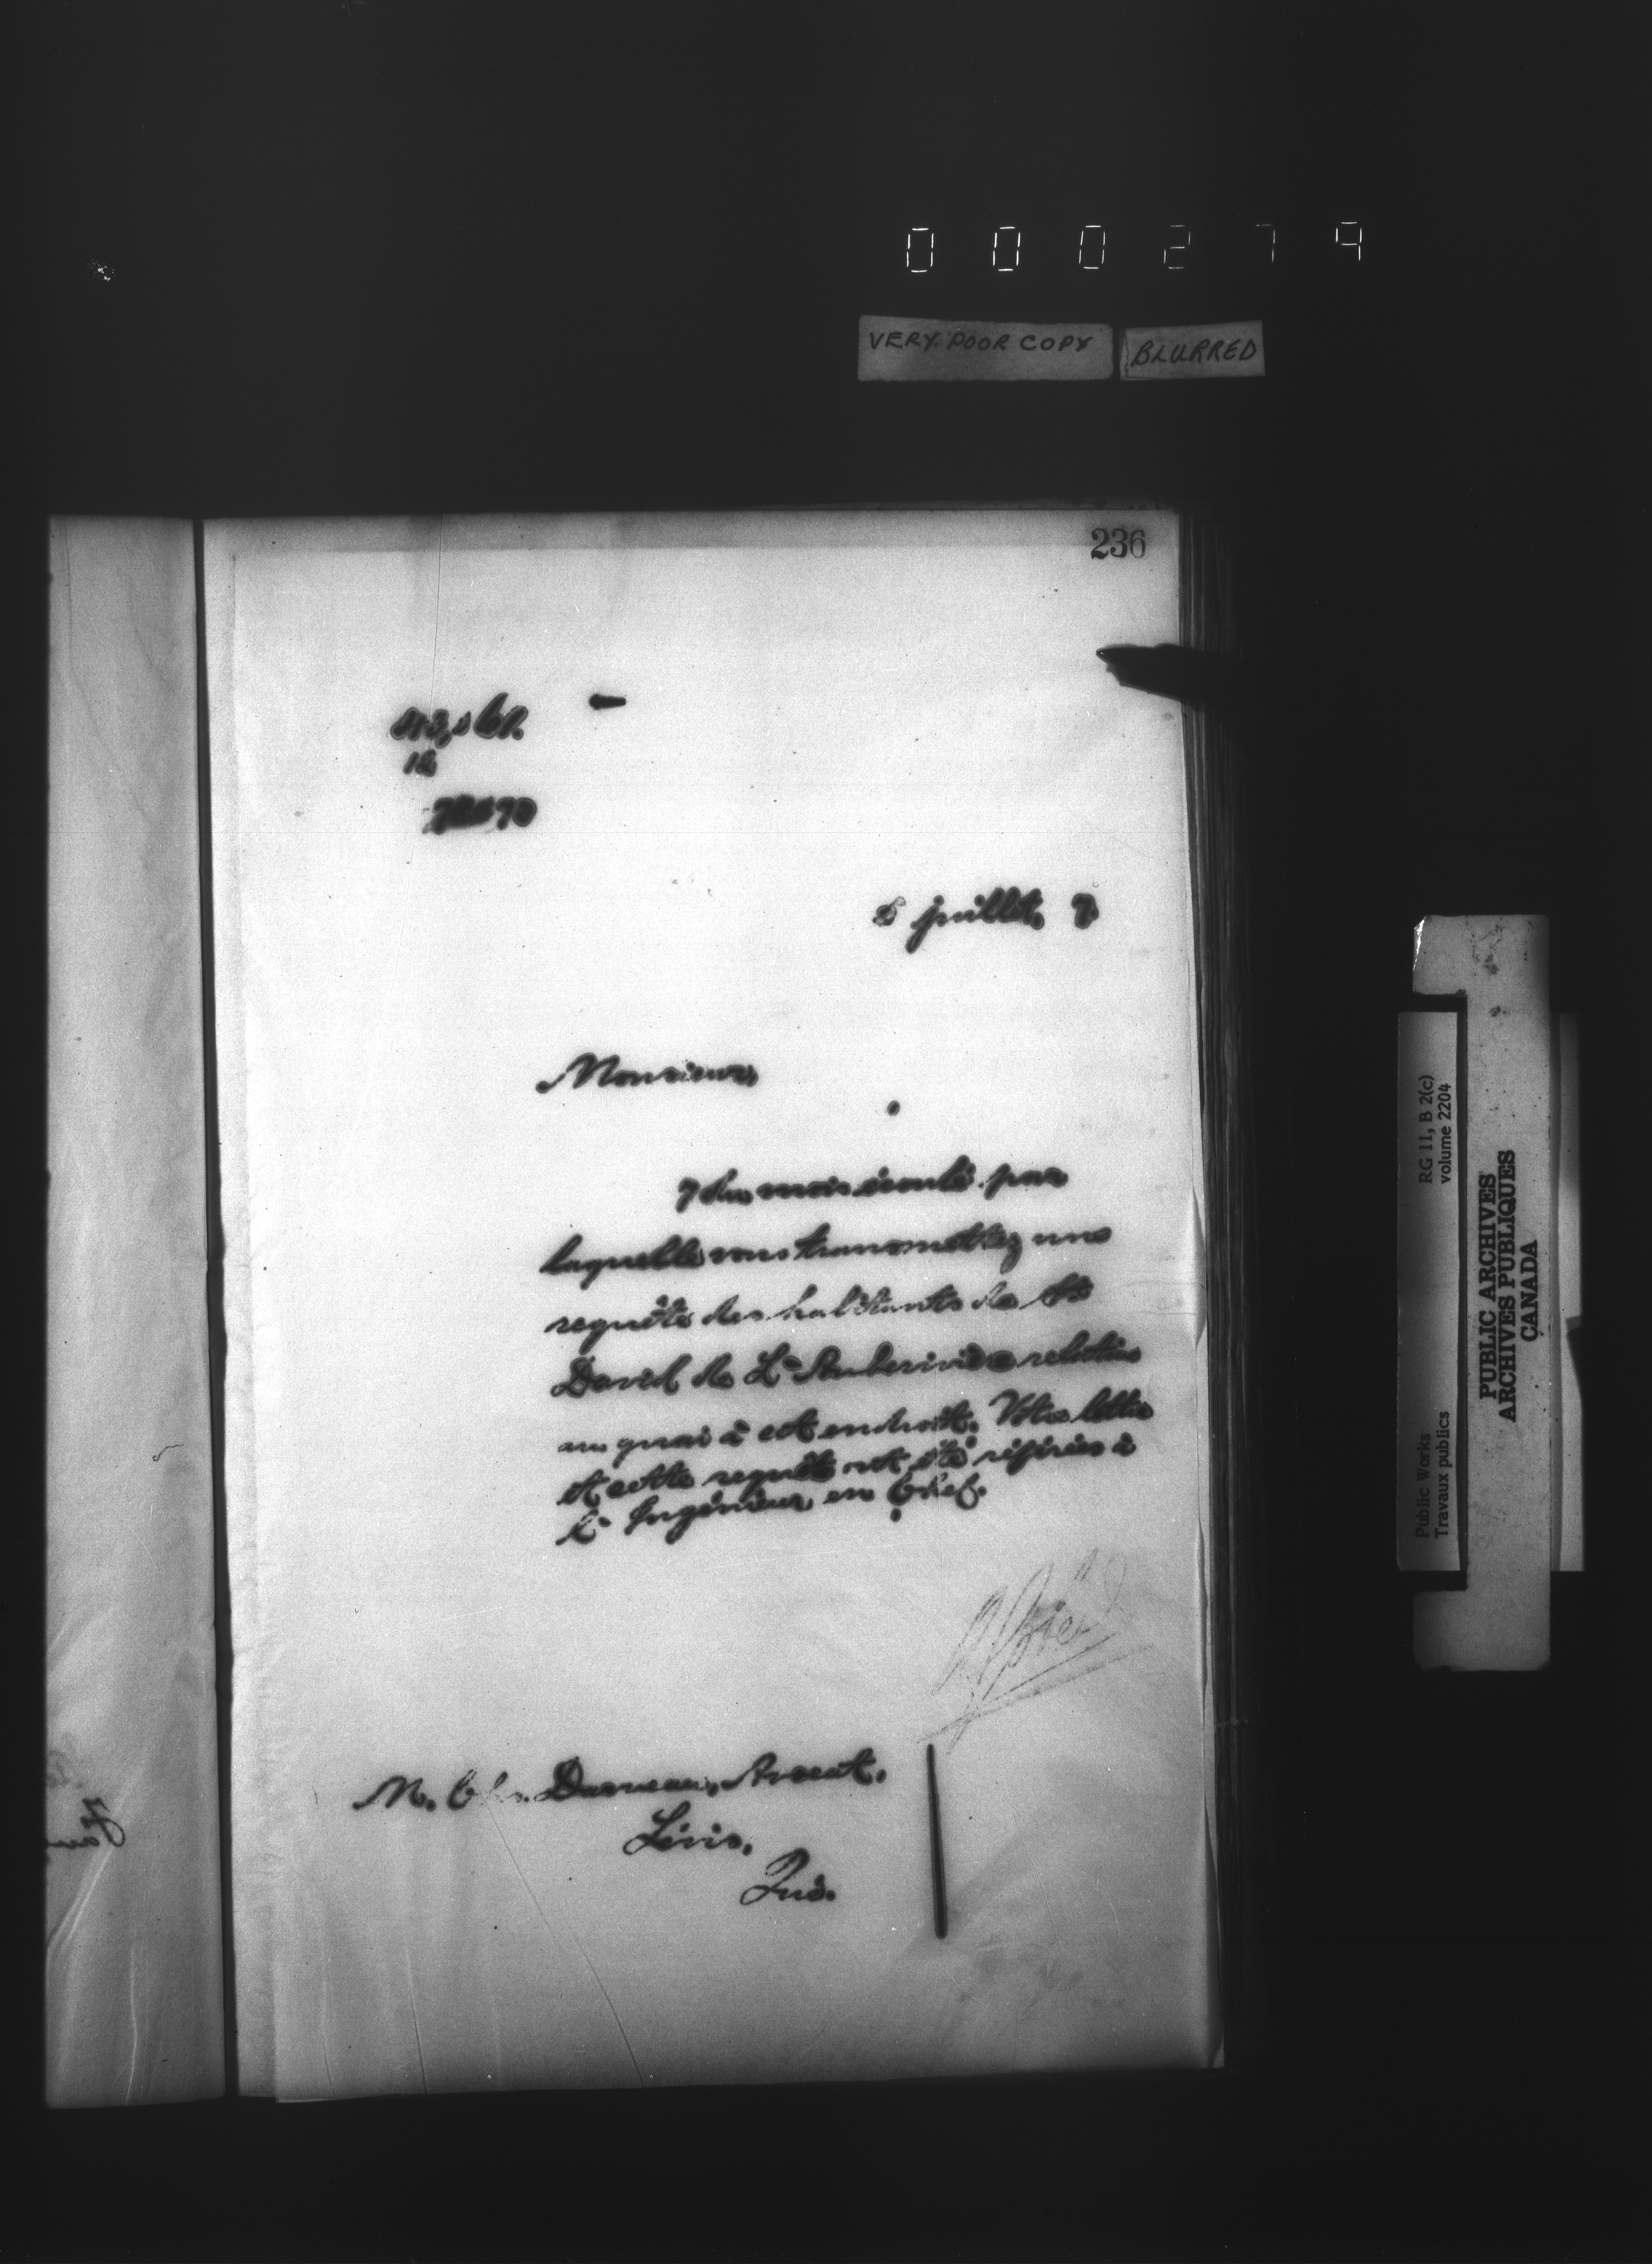 000279
VERY POOR COPY
BLURRED
236
5 juillet, 7
Monsieur,
7 du mois écoulé par
laquelle vous transmettez une
requête des habitants de St
David de L'Auberivière relative
au quai à cet endroit. Votre lettre
et cette requête ont été référées à
L'Ingénieur en Chef.
M. Chs. Darveau, Avocat,
Lévis,
Qué.
Public Works
Travaux publics
RG 11, B 2(c)
volume 2204
PUBLIC ARCHIVES
ARCHIVES PUBLIQUES
CANADA